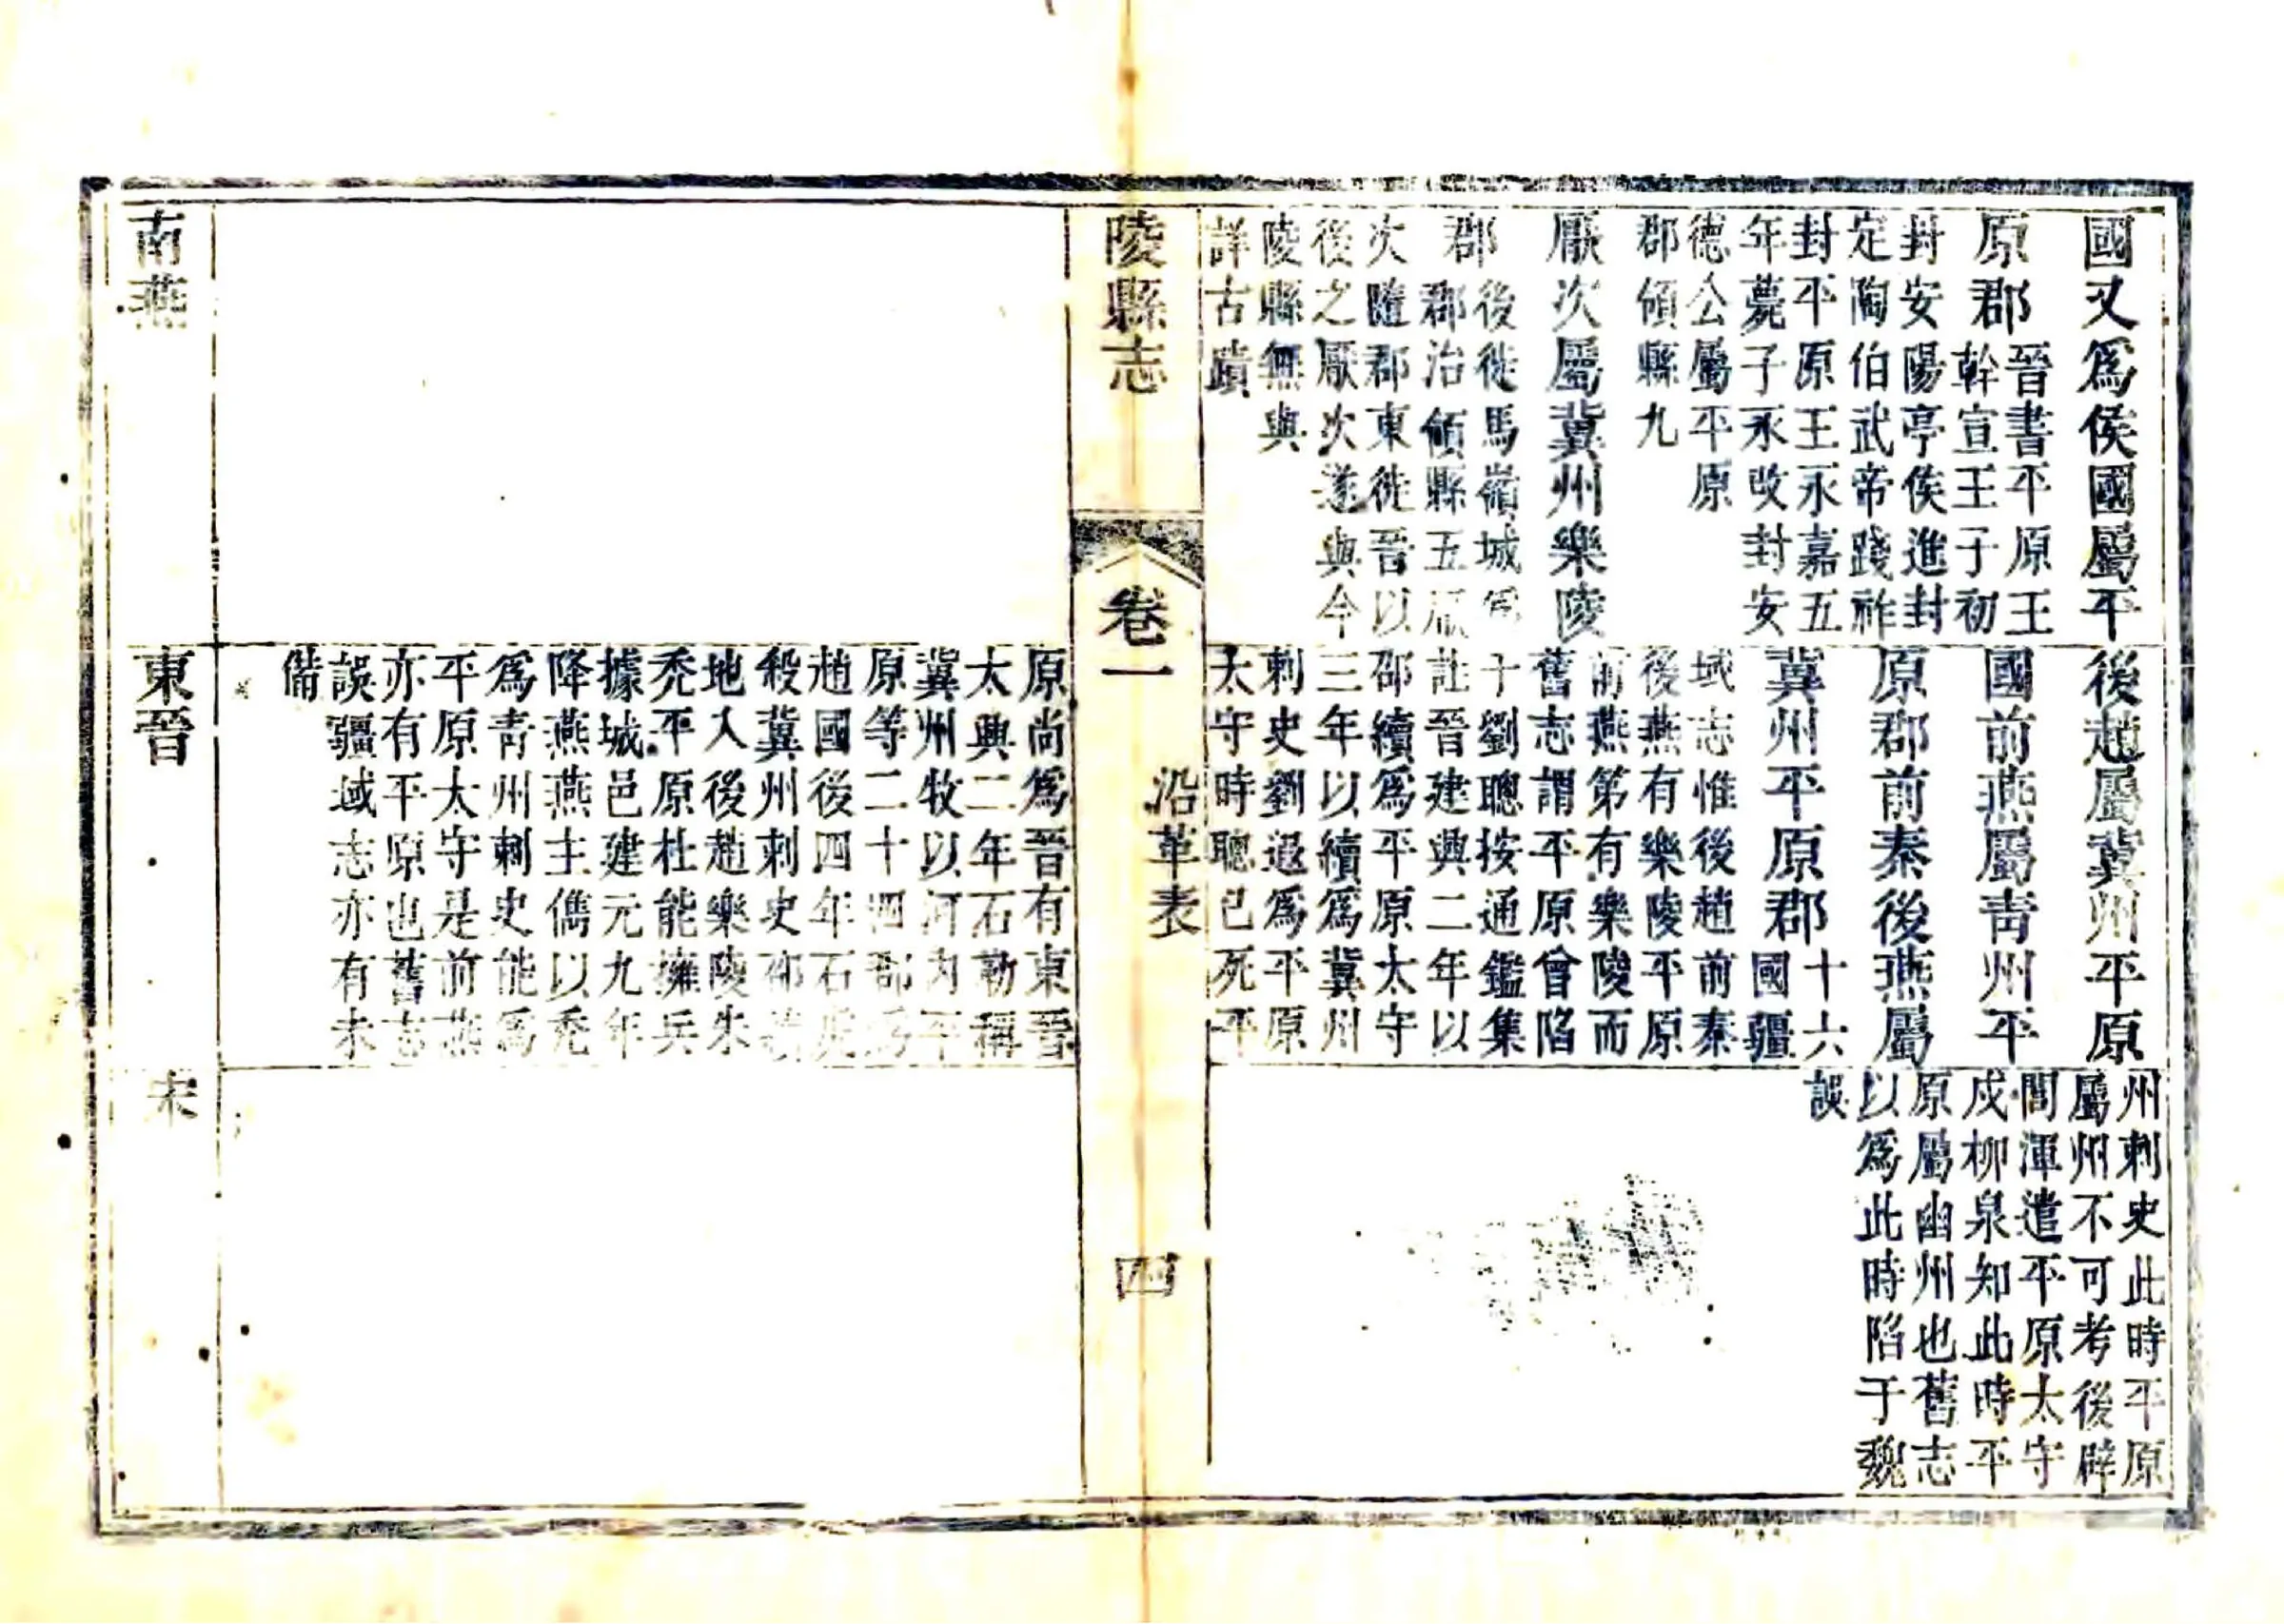 國又爲侯國屬平
原郡
晉書平原王
幹宣王子初
封安陽亭侯進封
定陶伯武帝踐祚
封平原王永嘉五
年薨子永改封安
德公屬平原
郡領縣九
厭次屬冀州樂陵
郡
後徙馬嶺城爲
郡郡治領縣五厭
次隨郡東徙晉以
後之厭次遂與今
陵縣無與
詳古蹟
後趙屬冀州平原
國前燕屬青州平
原郡前秦後燕屬
冀州平原郡
十六
國疆
域志惟後趙前秦
後燕有樂陵平原
前燕第有樂陵而
舊志謂平原曾陷
于劉聰按通鑑集
註晉建興二年以
邵續爲平原太守
三年以續爲冀州
刺史劉遐爲平原
太守時聰已死平
州刺史此時平原
屬州不可考後辟
閭渾遣平原太守
戍柳泉知此時平
原屬幽州也舊志
以爲此時陷于魏
誤
陵縣志
卷一
沿革表
四
原尚爲晉有東晉
太興二年石勒稱
冀州牧以河內平
原等二十四郡爲
趙國後四年石虎
殺冀州刺史邵續
地入後趙樂陵朱
禿平原杜能擁兵
據城邑建元九年
降燕燕主儁以禿
爲青州刺史能爲
平原太守是前燕
亦有平原也舊志
誤疆域志亦有未
備
南燕
東晉
宋